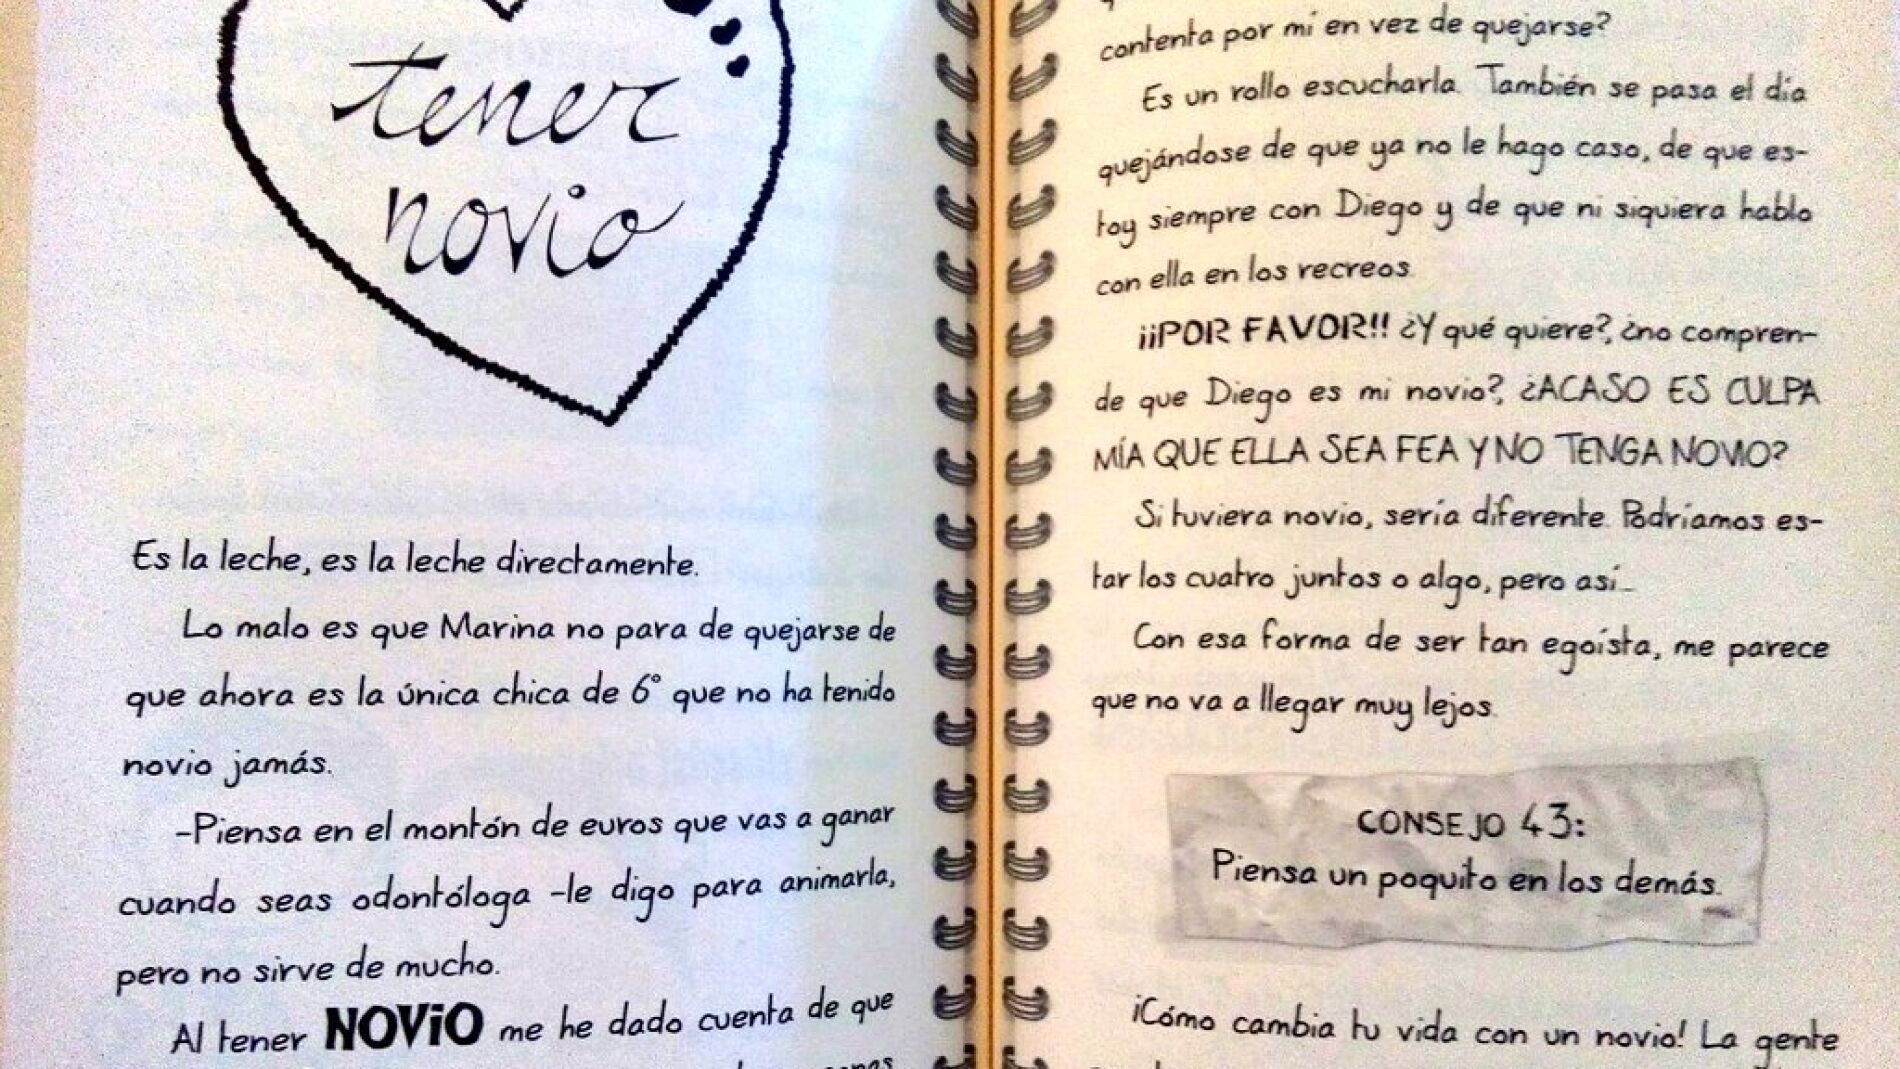 tener
novio
Es la leche, es la leche directamente.
Lo malo es que Marina no para de quejarse de
que ahora es la única chica de 6º que no ha tenido
novio jamás.
-Piensa en el montón de euros que vas a ganar
cuando seas odontóloga -le digo para animarla,
pero no sirve de mucho.
Al tener NOViO me he dado cuenta de que
contenta por mí en vez de quejarse?
Es un rollo escucharla. También se pasa el día
quejándose de que ya no le hago caso, de que es-
toy siempre con Diego y de que ni siquiera hablo
con ella en los recreos.
¡¡POR FAVOR!! ¿Y qué quiere?, ¿no compren-
de que Diego es mi novio?, ¿ACASO ES CULPA
MÍA QUE ELLA SEA FEA Y NO TENGA NOVIO?
Si tuviera novio, sería diferente. Podríamos es-
tar los cuatro juntos o algo, pero así...
Con esa forma de ser tan egoísta, me parece
que no va a llegar muy lejos.
CONSEJO 43:
Piensa un poquito en los demás.
¡Cómo cambia tu vida con un novio! La gente